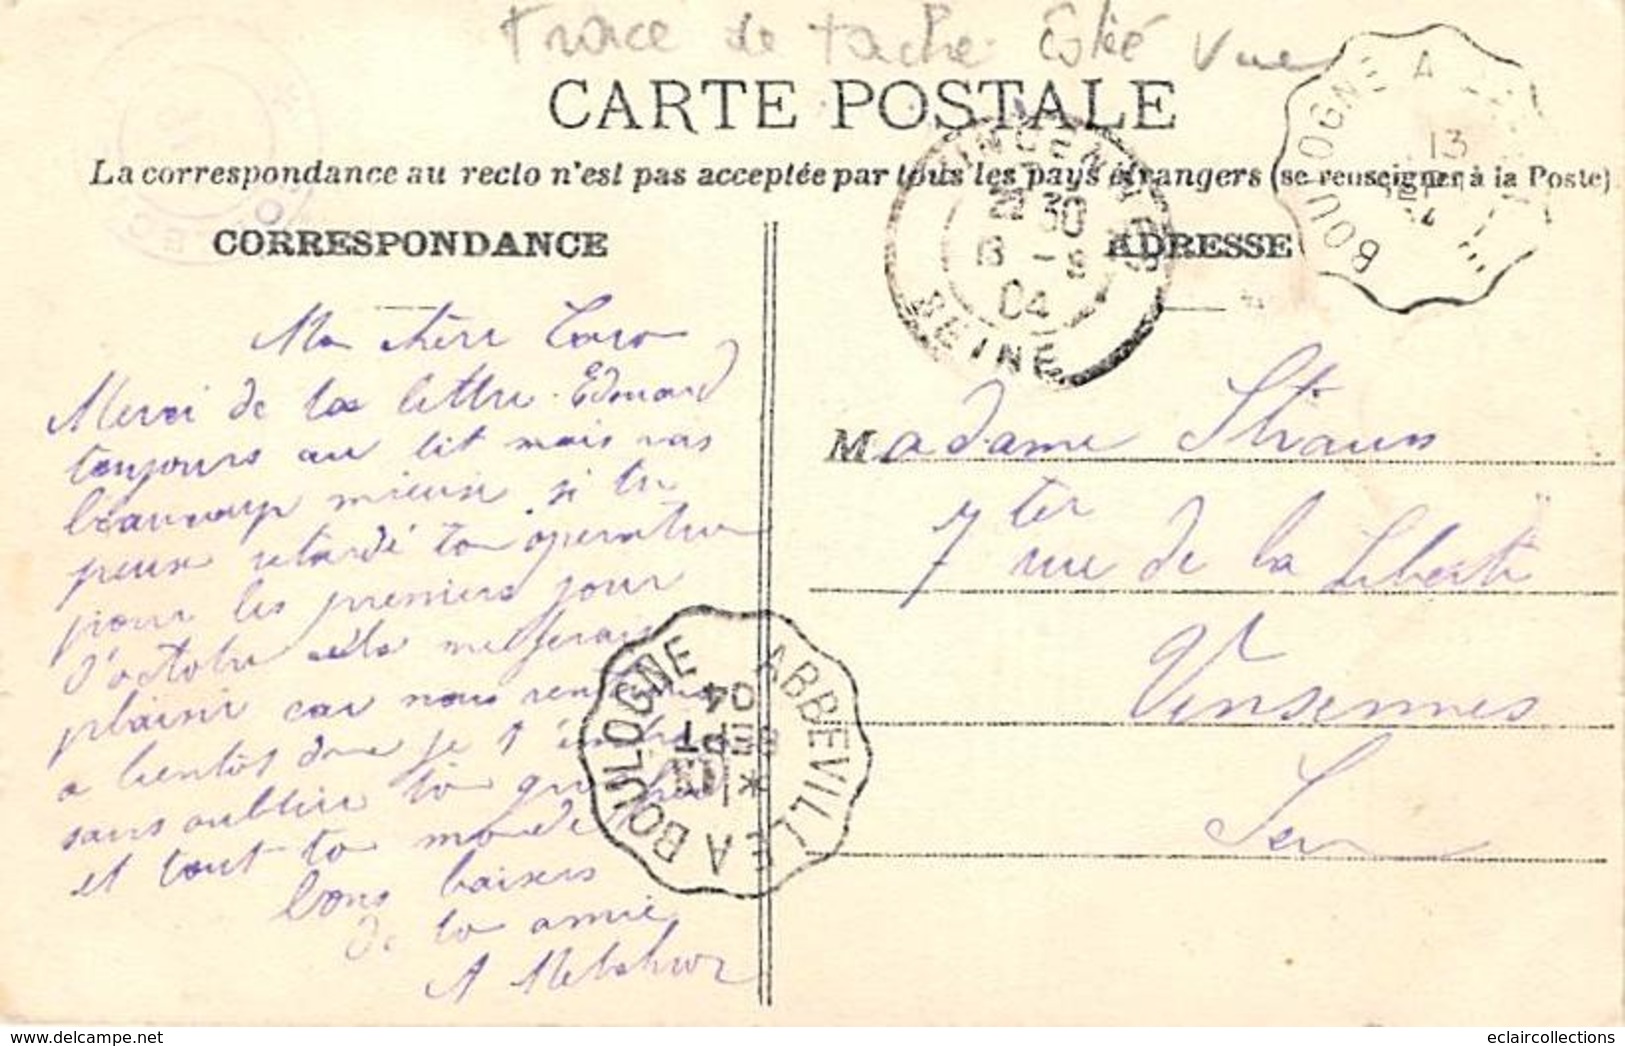 Trace de tache Côté Vue
CARTE POSTALE
La correspondance au recto n'est pas acceptée par tous les pays étrangers (se renseigner à la Poste)
CORRESPONDANCE
Ma chère
Merci de ta lettre Edouard
toujours au lit mais vas
beaucoup mieux si tu
peux retardé ton operation
pour les premiers jour
d'octobre cela me ferais
plaisir car nous
a bientôt donc je t'
sans oublier
et tout ton monde
bons baisers
de ton amie
A
ADRESSE
Madame Straus
7 ter rue de la Liberté
Vinsennes
Seine
VINCENNES
30
04
SEINE
BOULOGNE A
13
ABBEVILLE A BOULOGNE
SEPT
04
eclaircollections